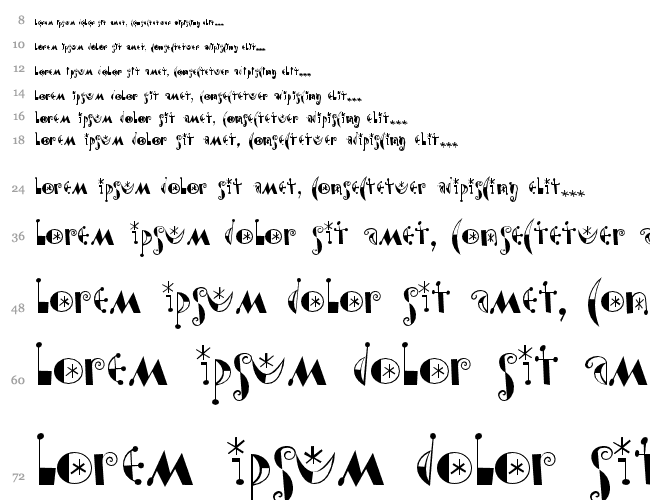 8 Lorem ipsum dolor sit amet, consectetuer adipiscing elit***
10 Lorem ipsum dolor sit amet, consectetuer adipiscing elit***
12 Lorem ipsum dolor sit amet, consectetuer adipiscing elit***
14 Lorem ipsum dolor sit amet, consectetuer adipiscing elit***
16 Lorem ipsum dolor sit amet, consectetuer adipiscing elit***
18 Lorem ipsum dolor sit amet, consectetuer adipiscing elit***
24 Lorem ipsum dolor sit amet, consectetuer adipiscing elit***
36 Lorem ipsum dolor sit amet, consectetuer a
48 Lorem ipsum dolor sit amet, con
60 Lorem ipsum dolor sit am
72 Lorem ipsum dolor sit